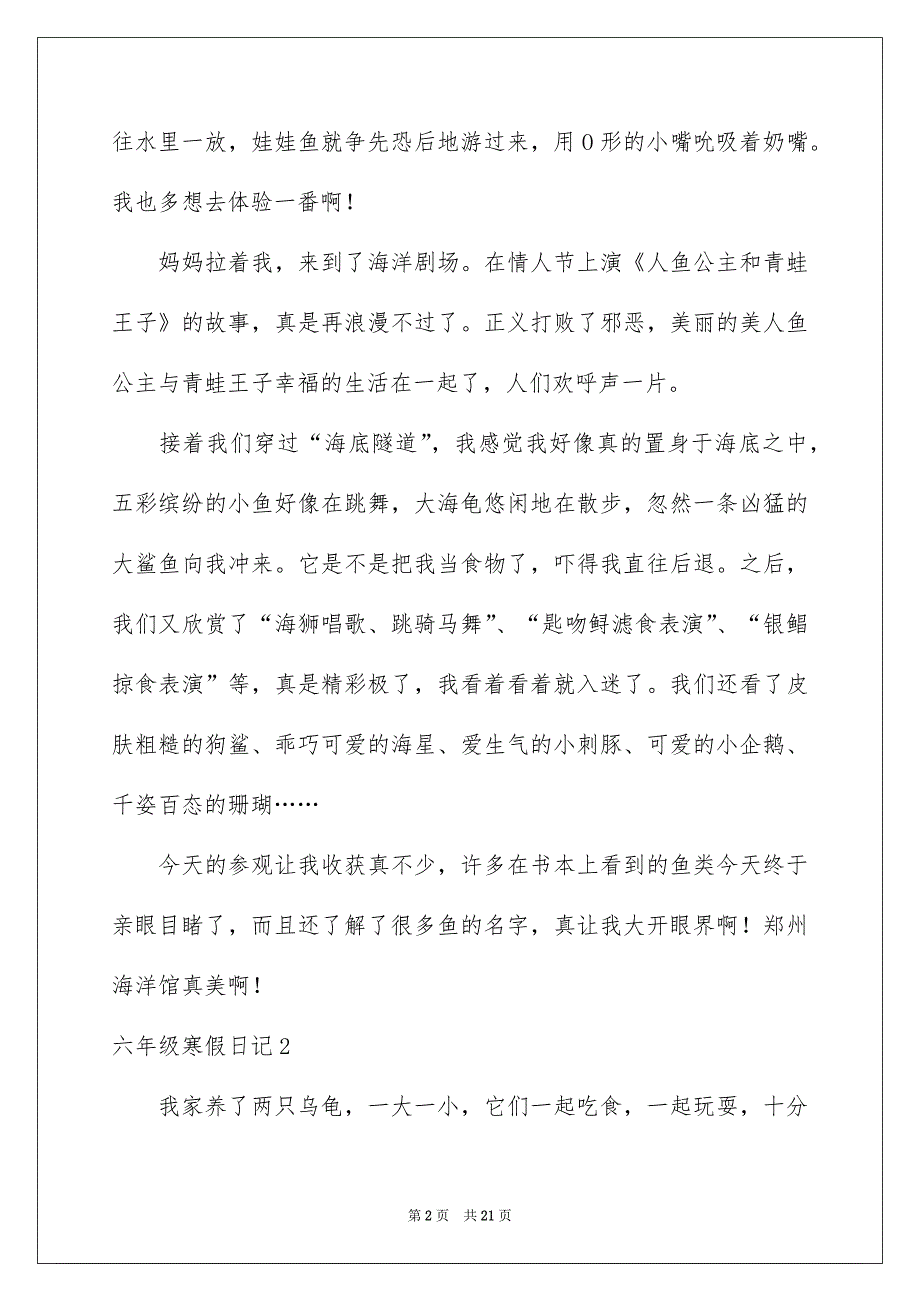 往水里一放，娃娃鱼就争先恐后地游过来，用 O 形的小嘴吮吸着奶嘴。
我也多想去体验一番啊！
妈妈拉着我，来到了海洋剧场。在情人节上演《人鱼公主和青蛙
王子》的故事，真是再浪漫不过了。正义打败了邪恶，美丽的美人鱼
公主与青蛙王子幸福的生活在一起了，人们欢呼声一片。
接着我们穿过“海底隧道”，我感觉我好像真的置身于海底之中，
五彩缤纷的小鱼好像在跳舞，大海龟悠闲地在散步，忽然一条凶猛的
大鲨鱼向我冲来。它是不是把我当食物了，吓得我直往后退。之后，
我们又欣赏了“海狮唱歌、跳骑马舞”、“匙吻鲟滤食表演”、“银鲳
掠食表演”等，真是精彩极了，我看着看着就入迷了。我们还看了皮
肤粗糙的狗鲨、乖巧可爱的海星、爱生气的小刺豚、可爱的小企鹅、
千姿百态的珊瑚……
今天的参观让我收获真不少，许多在书本上看到的鱼类今天终于
亲眼目睹了，而且还了解了很多鱼的名字，真让我大开眼界啊！郑州
海洋馆真美啊！
六年级寒假日记 2
我家养了两只乌龟，一大一小，它们一起吃食，一起玩耍，十分
第 2 页 共 21 页